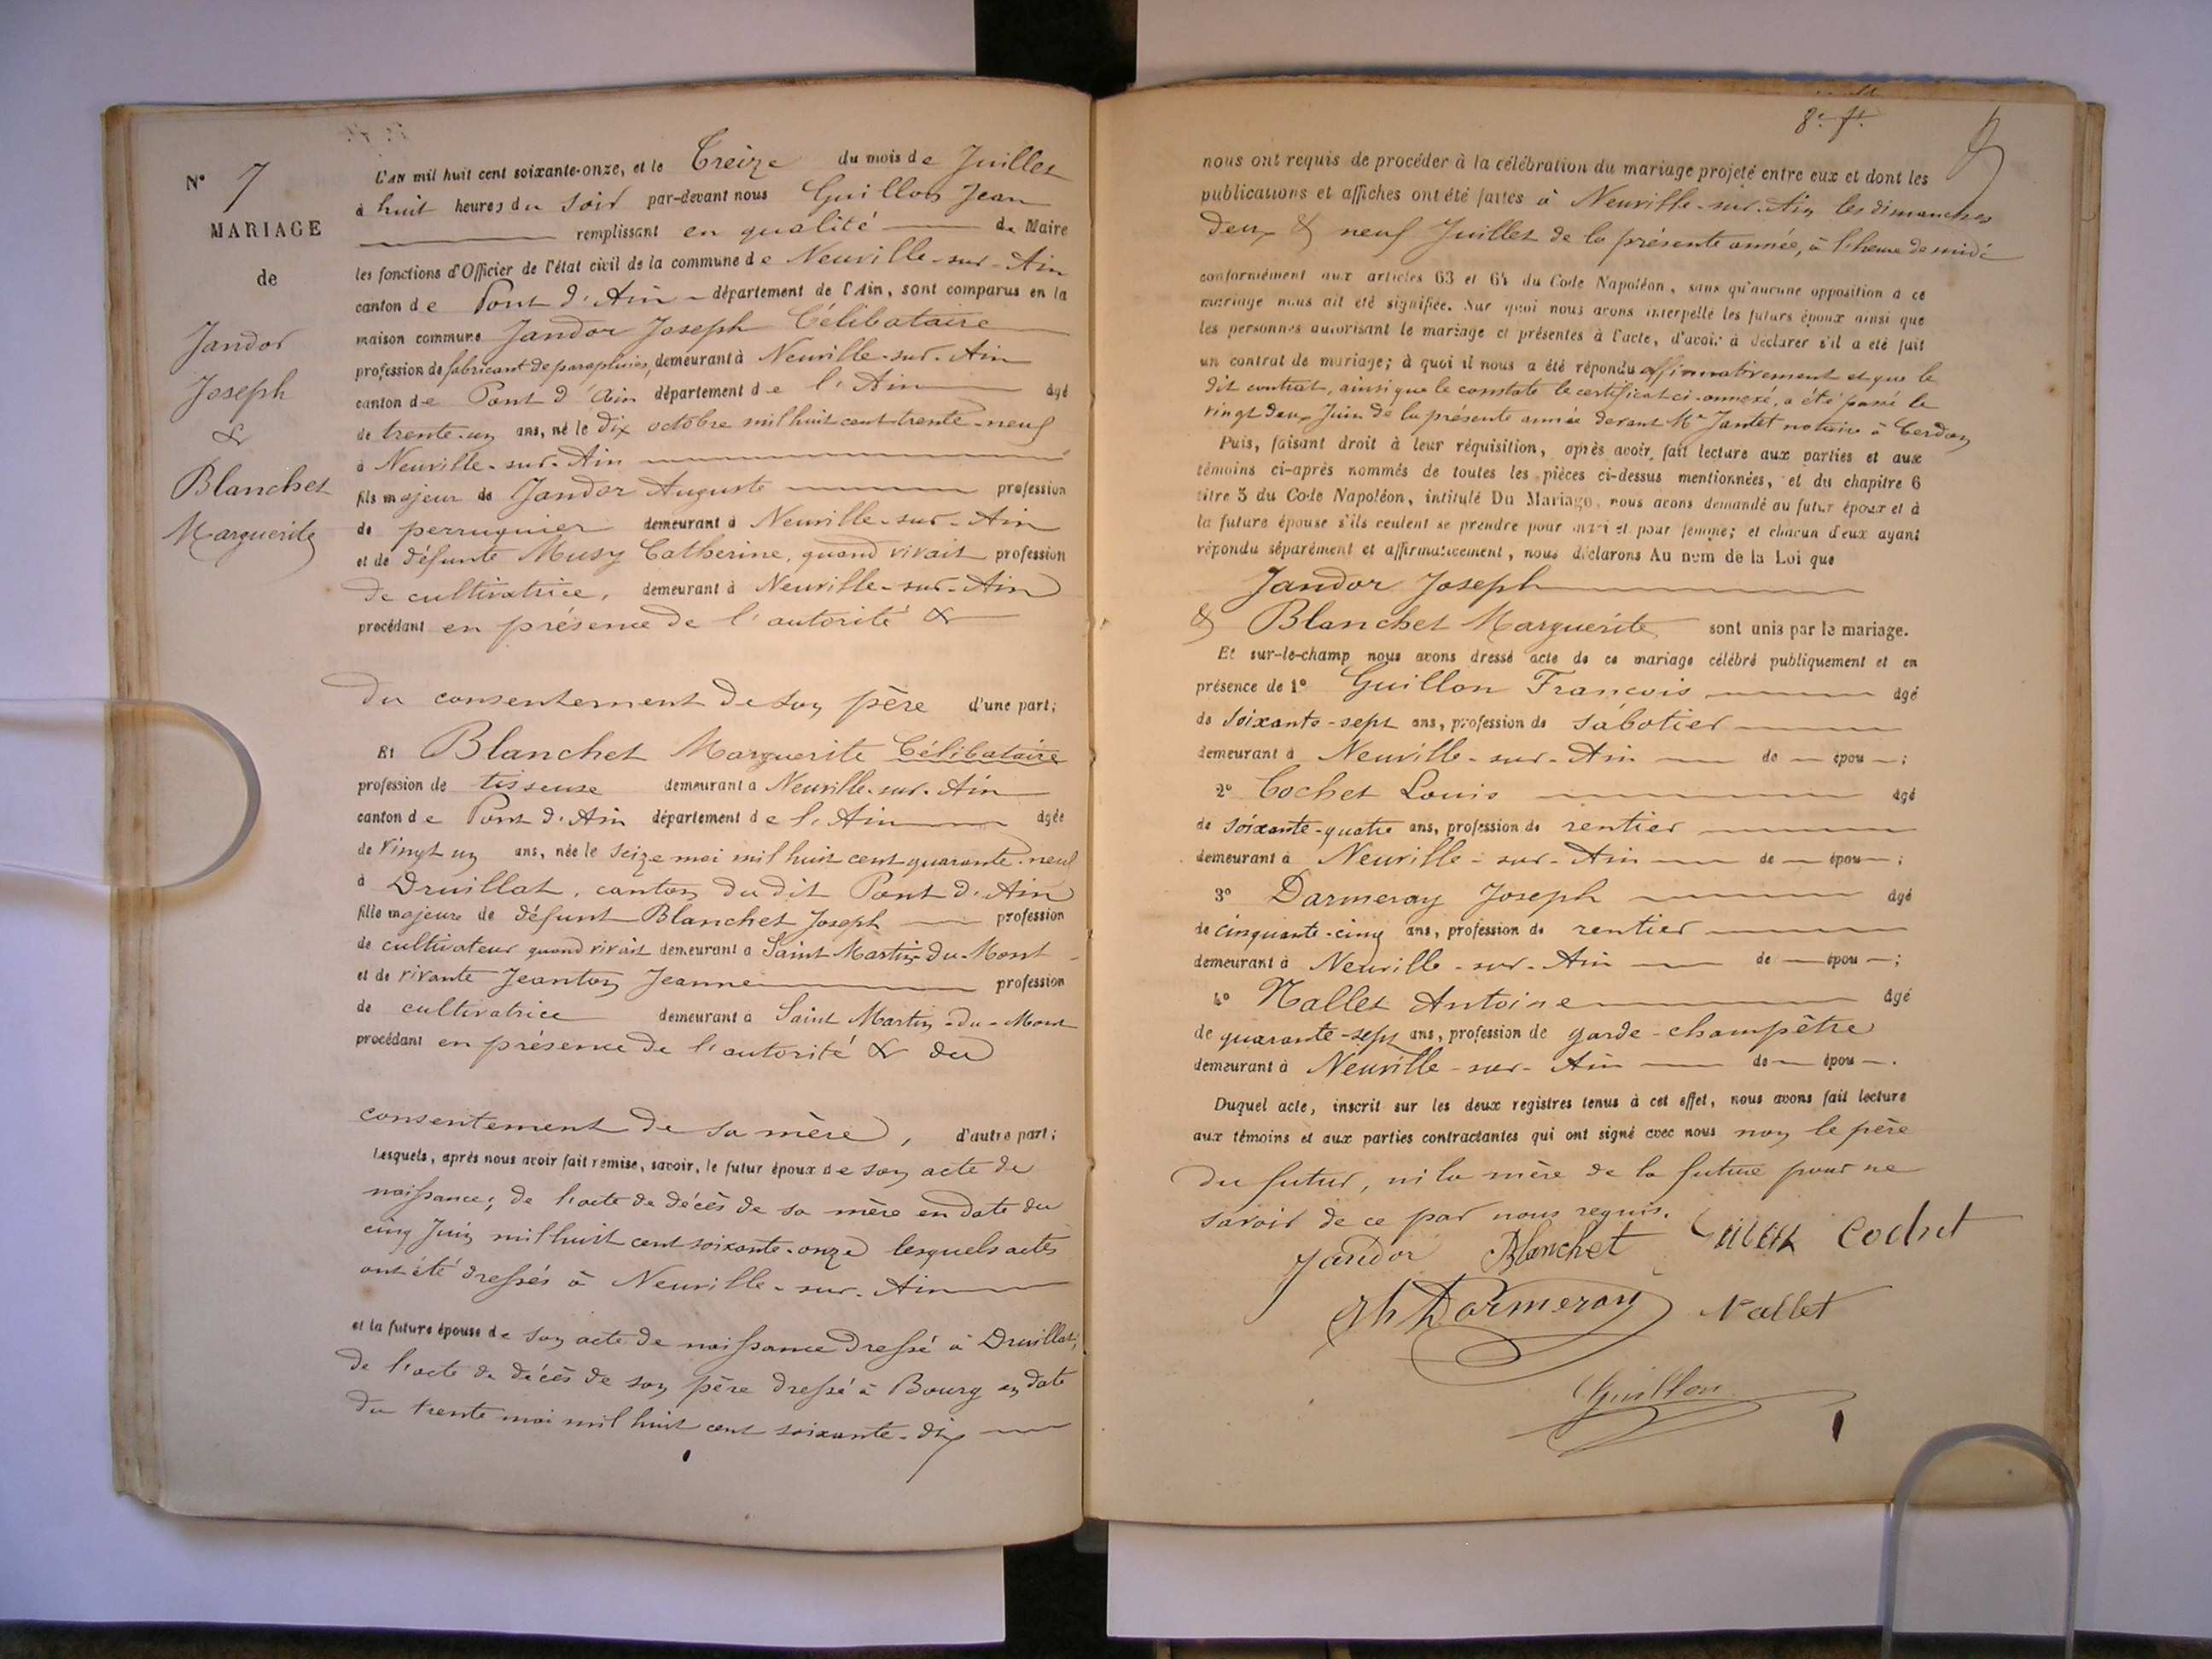 N° 7
MARIAGE
de
Jandor
Joseph
&
Blanchet
Marguerite
L'AN mil huit cent soixante-onze, et le Treize du mois de Juillet
à huit heures du soir par-devant nous Guillon Jean
remplissant en qualité de Maire
les fonctions d'Officier de l'état civil de la commune de Neuville-sur-Ain
canton de Pont d'Ain département de l'Ain, sont comparus en la
maison commune Jandor Joseph Célibataire
profession de fabricant de parapluies, demeurant à Neuville-sur-Ain
canton de Pont d'Ain département de l'Ain âgé
de trente-un ans, né le dix octobre mil huit cent trente-neuf
à Neuville-sur-Ain
fils majeur de Jandor Auguste profession
de perruquier demeurant à Neuville-sur-Ain
et de défunte Musy Catherine, quand vivait profession
de cultivatrice, demeurant à Neuville-sur-Ain
procédant en présence de l'autorité &
du consentement de son père d'une part;
Et Blanchet Marguerite Célibataire
profession de tisseuse demeurant à Neuville-sur-Ain
canton de Pont d'Ain département de l'Ain âgée
de vingt un ans, née le seize mai mil huit cent quarante-neuf
à Druillat, canton du dit Pont d'Ain
fille majeure de défunt Blanchet Joseph profession
de cultivateur quand vivait demeurant à Saint Martin-du-Mont
et de vivante Jeanton Jeanne profession
de cultivatrice demeurant à Saint Martin-du-Mont
procédant en présence de l'autorité & du
consentement de sa mère, d'autre part;
Lesquels, après nous avoir fait remise, savoir, le futur époux de son acte de
naissance; de l'acte de décès de sa mère en date du
cinq Juin mil huit cent soixante-onze lesquels actes
ont été dressés à Neuville-sur-Ain
et la future épouse de son acte de naissance dressé à Druillat,
de l'acte de décès de son père dressé à Bourg en date
du trente mai mil huit cent soixante-dix
8e ft.
nous ont requis de procéder à la célébration du mariage projeté entre eux et dont les
publications et affiches ont été faites à Neuville-sur-Ain les dimanches
deux & neuf Juillet de la présente année, à l'heure de midi
conformément aux articles 63 et 64 du Code Napoléon, sans qu'aucune opposition à ce
mariage nous ait été signifiée. Sur quoi nous avons interpellé les futurs époux ainsi que
les personnes autorisant le mariage et présentes à l'acte, d'avoir à déclarer s'il a été fait
un contrat de mariage; à quoi il nous a été répondu affirmativement et que le
dit contrat, ainsi que le constate le certificat ci-annexé, a été passé le
vingt deux Juin de la présente année devant Me Jantet notaire à Cerdon
Puis, faisant droit à leur réquisition, après avoir fait lecture aux parties et aux
témoins ci-après nommés de toutes les pièces ci-dessus mentionnées, et du chapitre 6
titre 5 du Code Napoléon, intitulé Du Mariage, nous avons demandé au futur époux et à
la future épouse s'ils veulent se prendre pour mari et pour femme; et chacun d'eux ayant
répondu séparément et affirmativement, nous déclarons Au nom de la Loi que
Jandor Joseph
& Blanchet Marguerite sont unis par le mariage.
Et sur-le-champ nous avons dressé acte de ce mariage célébré publiquement et en
présence de 1° Guillon François âgé
de soixante-sept ans, profession de sabotier
demeurant à Neuville-sur-Ain de — épou —;
2° Cochet Louis âgé
de soixante-quatre ans, profession de rentier
demeurant à Neuville-sur-Ain de — épou —;
3° Darmeray Joseph âgé
de cinquante-cinq ans, profession de rentier
demeurant à Neuville-sur-Ain de — épou —;
4° Nallet Antoine âgé
de quarante-sept ans, profession de garde-champêtre
demeurant à Neuville-sur-Ain de — épou —.
Duquel acte, inscrit sur les deux registres tenus à cet effet, nous avons fait lecture
aux témoins et aux parties contractantes qui ont signé avec nous non le père
du futur, ni la mère de la future pour ne
savoir de ce par nous requis.
Jandor Blanchet Cochet
Darmeray Nallet
Guillon